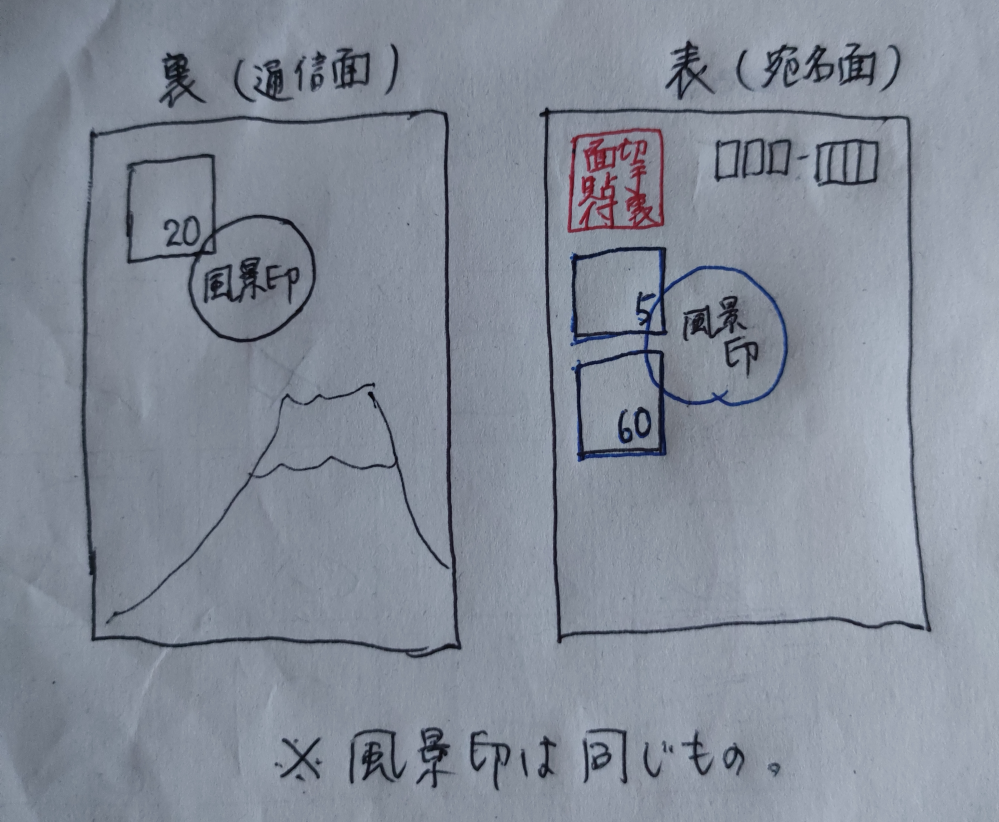 裏(通信面)
20
風景印
表(宛名面)
切手裏
面貼付
5
60
風景
印
※風景印は同じもの。